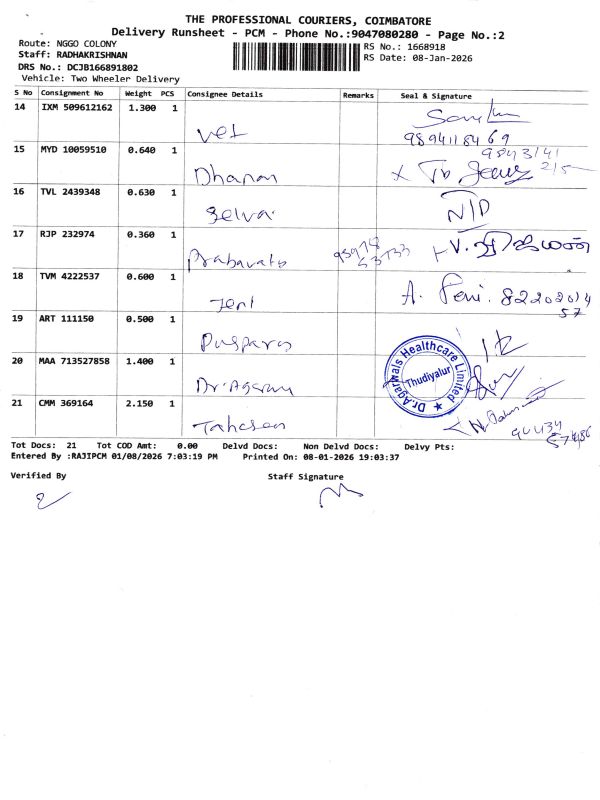 THE PROFESSIONAL COURIERS, COIMBATORE
Delivery Runsheet - PCM - Phone No.:9047080280 - Page No.:2
Route: NGGO COLONY
Staff: RADHAKRISHNAN
DRS No.: DCJB166891802
Vehicle: Two Wheeler Delivery
RS No.: 1668918
RS Date: 08-Jan-2026
S No Consignment No Weight PCS Consignee Details Remarks Seal & Signature
14 IXM 509612162 1.300 1
Vel 9894118469
15 MYD 10059510 0.640 1
Dhanan
16 TVL 2439348 0.630 1
Selva N/D
17 RJP 232974 0.360 1
Prabavato
18 TVM 4222537 0.600 1
Jeni A. Jeni.
19 ART 111150 0.500 1
20 MAA 713527858 1.400 1
Dr.Agarwals Healthcare Limited
Thudiyalur
21 CMM 369164 2.150 1
Tot Docs: 21 Tot COD Amt: 0.00 Delvd Docs: Non Delvd Docs: Delvy Pts:
Entered By :RAJIPCM 01/08/2026 7:03:19 PM Printed On: 08-01-2026 19:03:37
Verified By Staff Signature